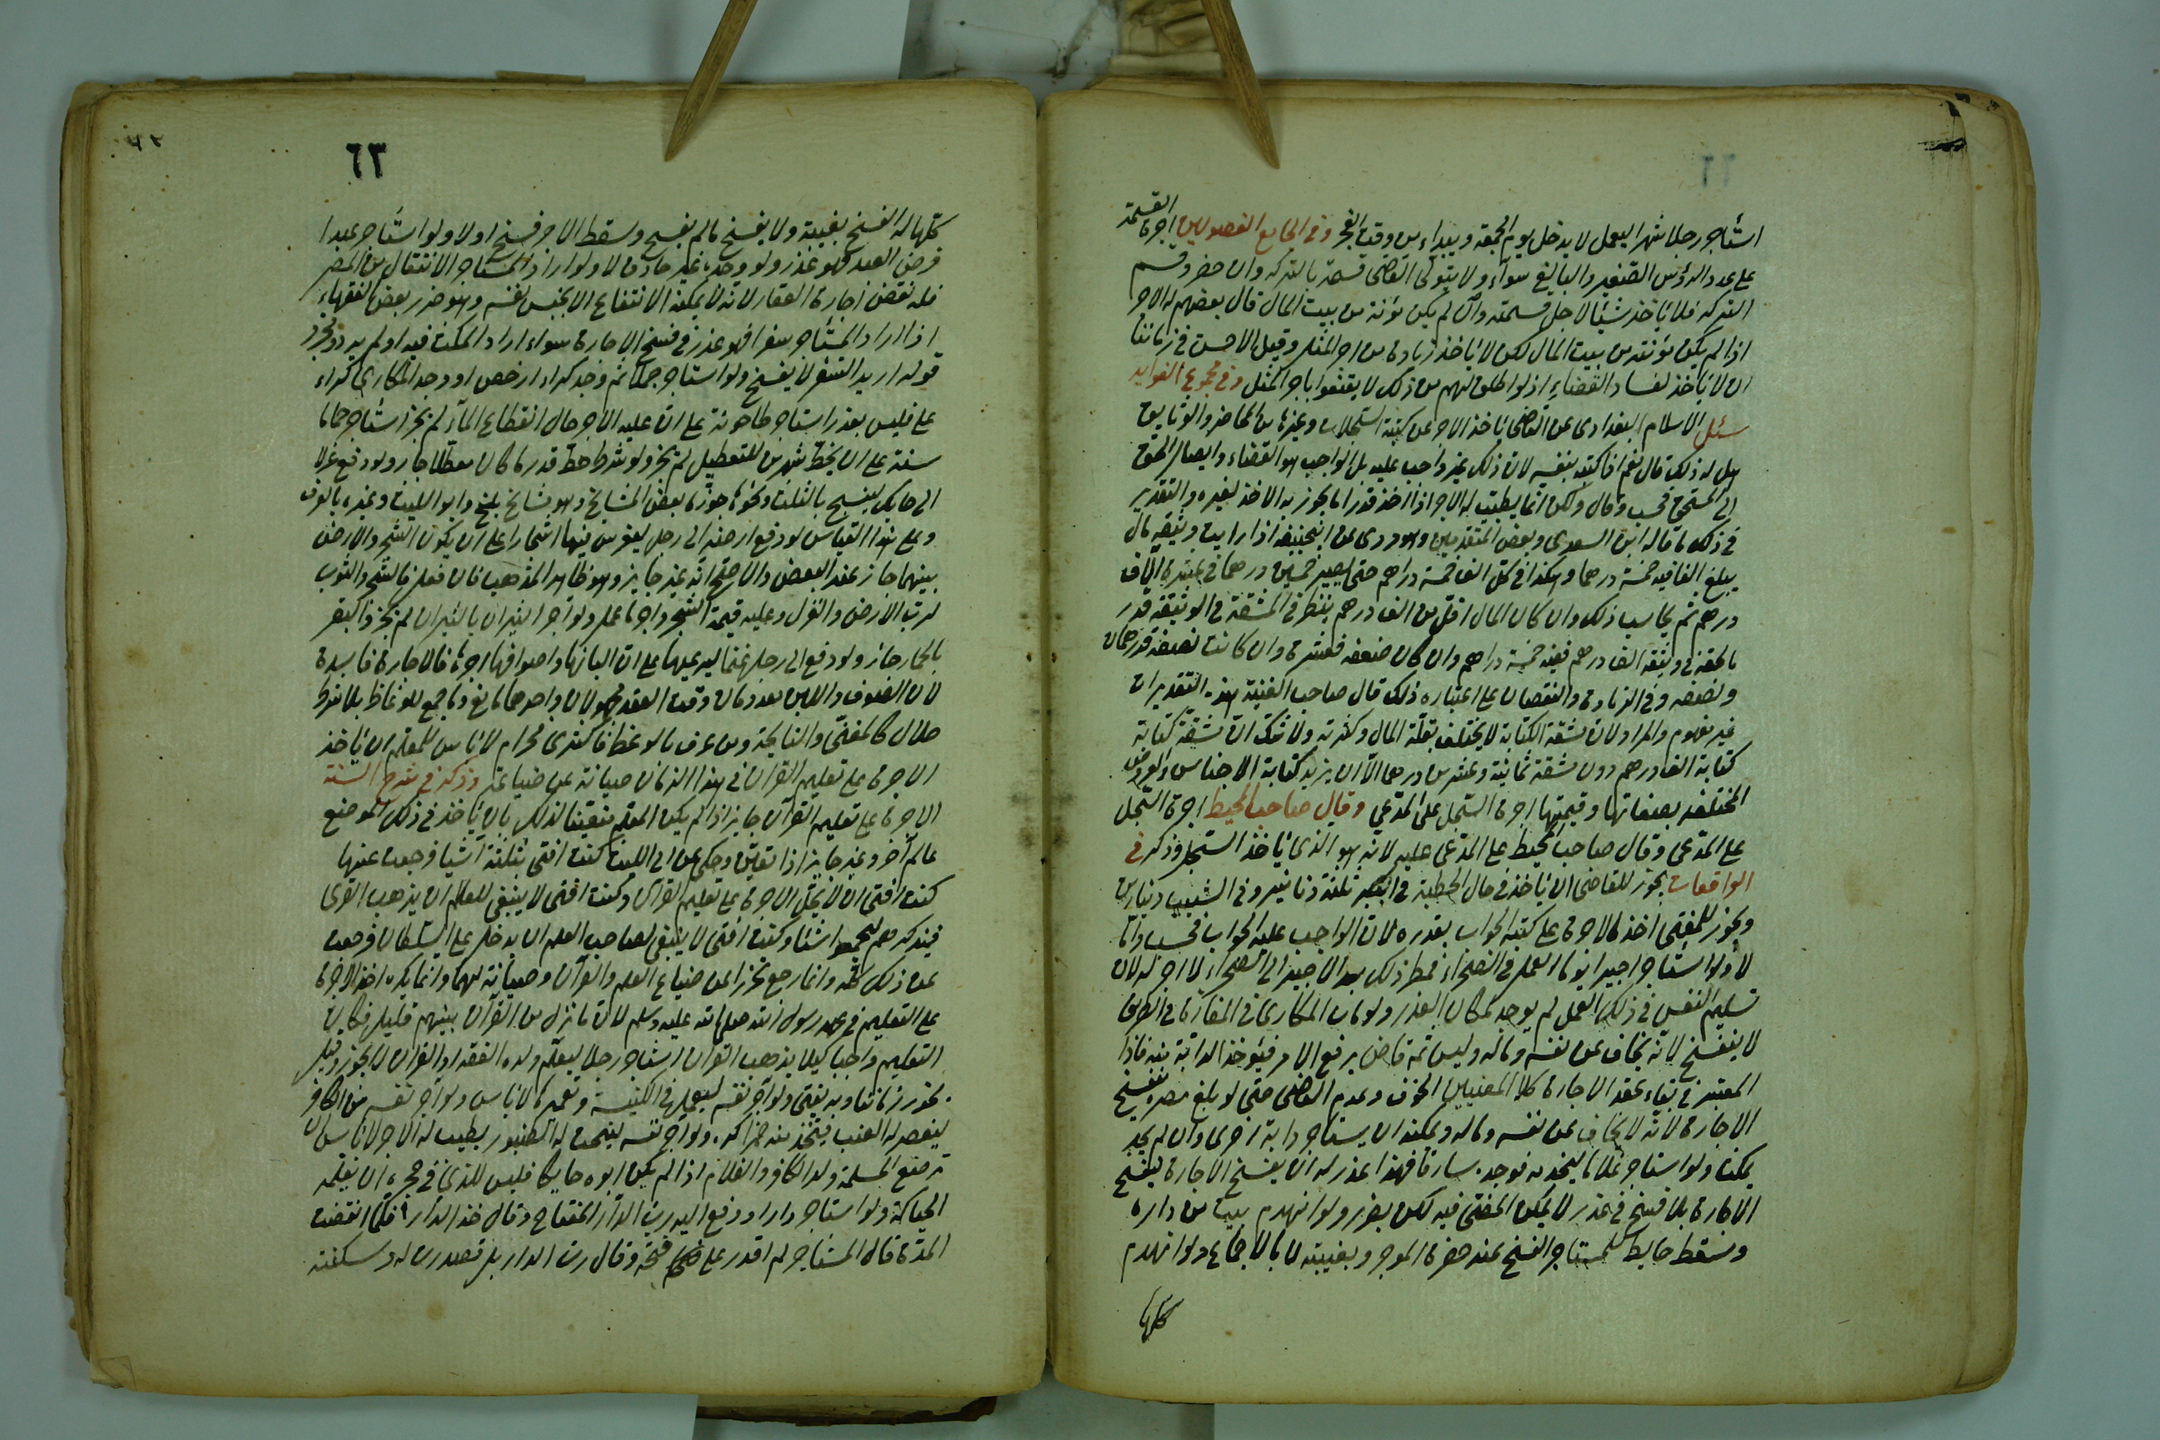 استأجر رجلا شهرا ليعمل لا يدخل يوم الجمعة ويبداء من وقت الفجر وفي الجامع الفصولين اجرة القسمة
على عدد الرؤس الصغير والبالغ سواء ولا يتولى القاضي قسمة بالتركة وان حضر وقسم
التركة فلا ياخذ شيئا لاجل قسمته وان لم يكن مؤنته من بيت المال قال بعضهم له الاجر
اذا لم يكن مؤنته من بيت المال لكن لا ياخذ زيادة من اجر المثل وقيل الاحسن في زماننا
ان لا ياخذ لفساد القضاء اذ لو اطلق لهم من ذلك لا يقنعوا باجر المثل وفي مجموع الفوايد
سئل الاسلام السغدي عن القاضي ياخذ الاجر عن كتبة السجلات وغيرها من المحاضر والوثايق
هل له ذلك قال نعم اذا كتبه بنفسه لان ذلك غير واجب عليه بل الواجب هو القضاء وايصال الحق
الى المستحق فحسب وقال ولكن انما يطيب له الاجر اذا اخذ قدر ما يجوز به الاخذ لغيره والتقدير
في ذلك ما قاله ابن السعدي وبعض المتقدمين وهو روي عن ابي حنيفة اذا رايت وثيقة مال
يبلغ الفا فيه خمسة درهما وهكذا في كل الف خمسة دراهم حتى يصير خمسين درهما في عشرة الاف
درهم ثم يحاسب ذلك وان كان المال اقل من الف درهم ينظر في المشقة في الوثيقة قدر
ما لحقه في وثيقة الف درهم ففيه خمسة دراهم وان كان ضعفه فعشرة وان كانت نصفه فدرهمان
ونصفه وفي الزيادة والنقصان على اعتباره ذلك قال صاحب القنية هذه التقديرات
غير مفهوم والمراد لان مشقة الكتابة لا يختلف بقلة المال وكثرته ولا شك ان مشقة كتابة
كتابة الف درهم دون مشقة ثمانية وعشرين درهما الا ان يزيد كتابة الاجناس والعروض
المختلفة بصفاتها وقيمتها اجرة السجل على المدعي وقال صاحب المحيط اجرة السجل
على المدعي وقال صاحب المحيط على المدعى عليه لانه هو الذي ياخذ السجل وذكر في
الواقعات يجوز للقاضي ان ياخذ في حال الخطبة في البكر ثلثة دنانير وفي الثيب دينارين
ويجوز للمفتي اخذ الاجرة على كتبة الجواب بقدره لان الواجب عليه الجواب فحسب واما
لا ولو استأجر اجيرا يوما ليعمل في الصحراء فمطر ذلك بعد الاجير الى الصحراء لا اجر له لان
تسليم النفس في ذلك العمل لم يوجد لمكان العذر ولو مات المكاري في المفازة في الطريق
لا ينفسخ لانه يخاف عن نفسه وماله وليس ثمة قاض يرفع الامر فيؤخذ الدابة منه فاذا
المعتبر في بقاء عقد الاجارة كلا المعنيين الخوف وعدم القاضي حتى لو بلغ مصره ينفسخ
الاجارة لانه لا يخاف عن نفسه وماله ويمكنه ان يستأجر دابة اخرى وان لم يجد
يمكنا ولو استأجر غلاما ليخدمه فوجد سارقا فهذا عذر له ان يفسخ الاجارة ينفسخ
الاجارة بلا فسخ في عذر لا يمكن المضي فيه لكن بضرر ولو انهدم بيت من داره
وسقط حايط للمستأجر الفسخ عند حضرة الموجر وبغيبته لا بالاجماع ولو انهدم
كلها
٦٣
كلها له الفسخ بغيبته ولا يفسخ ما لم يفسخ وسقط الاجر فسخ اولا ولو استأجر عبدا
فمرض العبد فهو عذر ولو وجده غير حاذق لا ولو اراد المستأجر الانتقال من المصر
فله نقض اجارة العقار لانه لا يمكنه الانتفاع الا بحبس نفسه وهو ضرر بعض الفقهاء
اذا اراد المستأجر سفرا فهو عذر في فسخ الاجارة سواء اراد المكث فيه او لم يرد وبمجرد
قوله اريد السفر لا يفسخ ولو استأجر جملا ثم وجد كراء ارخص او وجد المكاري كراء
على فليس بعذر استاجر طاحونة على ان عليه الاجر حال انقطاع الماء لم يجز استأجر حماما
سنة على ان يحط شهرين للتعطيل لم يجز ولو شرط حط قدر ما كان معطلا جاز ولو دفع غزلا
الى حايك لينسج بالثلث ونحوه جوزه بعض المشايخ وهو مشايخ بلخ وابو الليث وغيره بالعرف
وعلى هذا القياس لو دفع ارضه الى رجل ليغرس فيها اشجارا على ان يكون الشجر والارض
بينهما جاز عند البعض والاصح انه غير جايز وهو ظاهر المذهب فان فعل فالشجر والثوب
لرب الارض والغزل وعليه قيمة الشجر واجر ما عمل ولو اجر الثيران بالثيران لم يجز والبقر
بالحمار جاز ولو دفع الى رجل غنما ليرعيها على ان البانها واصوافها اجرة فالاجارة فاسدة
لان الصوف واللبن معدومان وقت العقد مجهولان واحدهما مانع وما جمع للوعاظ بلا شرط
حلال كالمغني والنايحة ومن عرف بالوعظ فاكتدى محرام لا باس للمعلم ان ياخذ
الاجرة على تعليم القرآن في هذا الزمان صيانة عن ضياعه وذكر في شرح السنة
الاجرة على تعليم القرآن جايز اذا لم يكن المعلم متعينا لذلك بان ياخذ في ذلك الموضع
عالم آخر وغير جايز اذا تعين وحكي عن ابي الليث كنت افتي بثلثة اشيا فرجعت عنها
كنت افتي ان لا يحل الاجرة على تعليم القرآن وكنت افتي لا ينبغي للعالم ان يذهب القرى
فيذكرهم ليجمعوا شيئا وكنت افتي لا ينبغي لصاحب العلم ان يدخل على السلطان فرجعت
عن ذلك كله وانما رجع تحرزا عن ضياع العلم والقرآن وصيانة لهما وانما يكره اخذ الاجرة
على التعليم في عهد رسول الله صلى الله عليه وسلم لان ما نزل من القرآن بينهم قليل فكان
التعليم واجبا كيلا يذهب القرآن استأجر رجلا ليعلم ولده الفقه او القرآن لا يجوز وقيل
يجوز في زماننا وبه يفتى ولو آجر نفسه ليعمل في الكنيسة وتعميرها لا باس ولو آجر نفسه من الكافر
ليعصر له العنب فيتخذ منه خمرا كره ولو اجر نفسه لينحت له الطنبور يطيب له الاجر لا باس ان
ترضع المسلمة ولد الكافر والغلام اذا لم يكن ابوه حايكا فليس للذي في حجره ان يعلمه
الحياكة ولو استاجر دارا ودفع اليه رب الدار المفتاح وقال خذ الدار فلما انقضت
المدة قال المستأجر لم اقدر على فتحه وقال رب الدار بل قدرت له وسكنته